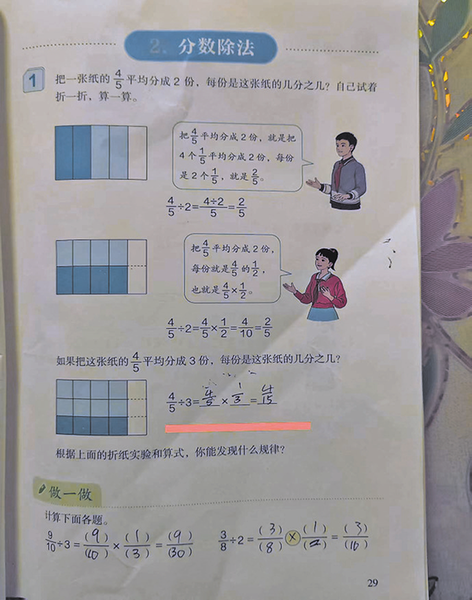 2. 分数除法
1 把一张纸的 4/5 平均分成 2 份，每份是这张纸的几分之几？自己试着
折一折，算一算。
把 4/5 平均分成 2 份，就是把
4 个 1/5 平均分成 2 份，每份
是 2 个 1/5，就是 2/5。
4/5÷2=4÷2/5=2/5
把 4/5 平均分成 2 份，
每份就是 4/5 的 1/2，
也就是 4/5×1/2。
4/5÷2=4/5×1/2=4/10=2/5
如果把这张纸的 4/5 平均分成 3 份，每份是这张纸的几分之几？
4/5÷3=4/5×1/3=4/15
根据上面的折纸实验和算式，你能发现什么规律？
做一做
计算下面各题。
9/10÷3=(9)/(10)×(1)/(3)=(9)/(30) 3/8÷2=(3)/(8)×(1)/(2)=(3)/(16)
29